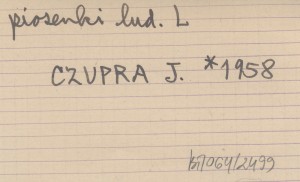 piosenki lud. L
CZUPRA J. *1958
/064/2499